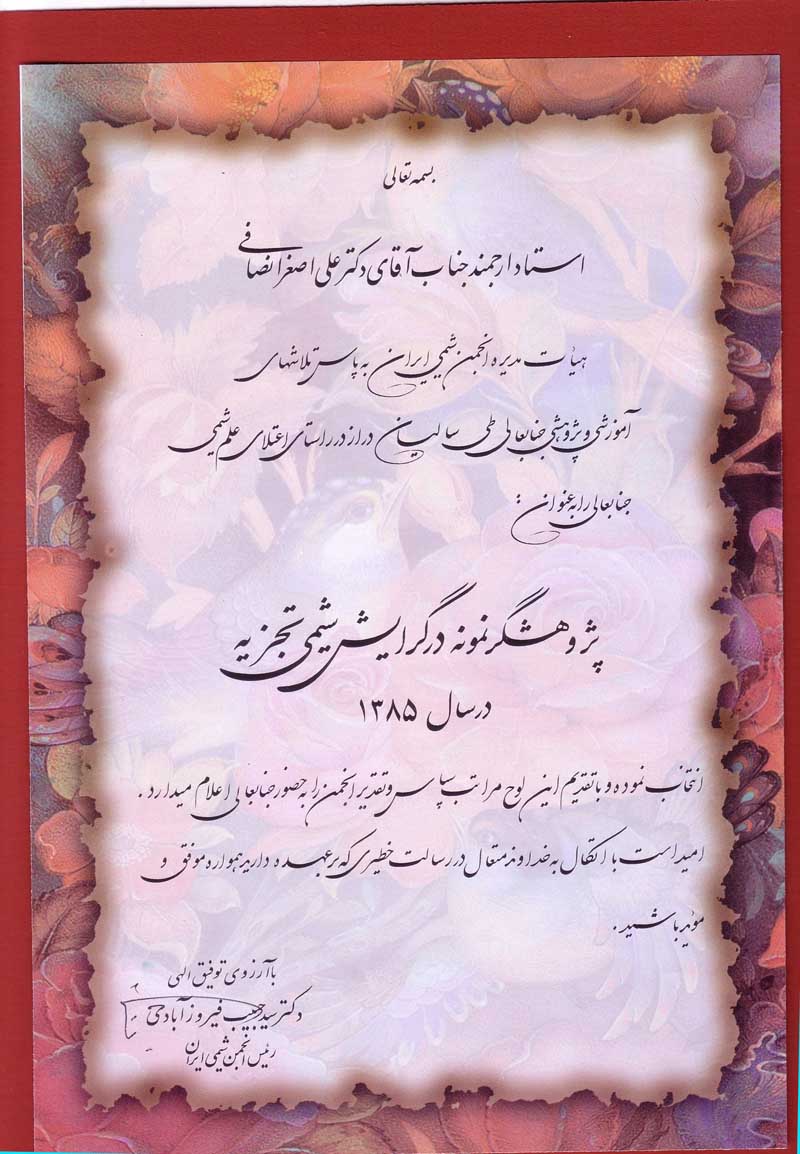 بسمه تعالی
استاد ارجمند جناب آقای دکتر علی اصغر انصافی
هیأت مدیره انجمن شیمی ایران به پاس تلاشهای
آموزشی و پژوهشی جنابعالی طی سالیان دراز در راستای اعتلای علم شیمی
جنابعالی را به عنوان :
پژوهشگر نمونه در گرایش شیمی تجزیه
در سال ۱۳۸۵
انتخاب نموده و با تقدیم این لوح مراتب سپاس و تقدیر انجمن را به حضور جنابعالی اعلام میدارد .
امید است با اتکال به خداوند متعال در رسالت خطیری که بر عهده دارید همواره موفق و
مؤید باشید .
با آرزوی توفیق الهی
دکتر سید حبیب فیروزآبادی
رئیس انجمن شیمی ایران